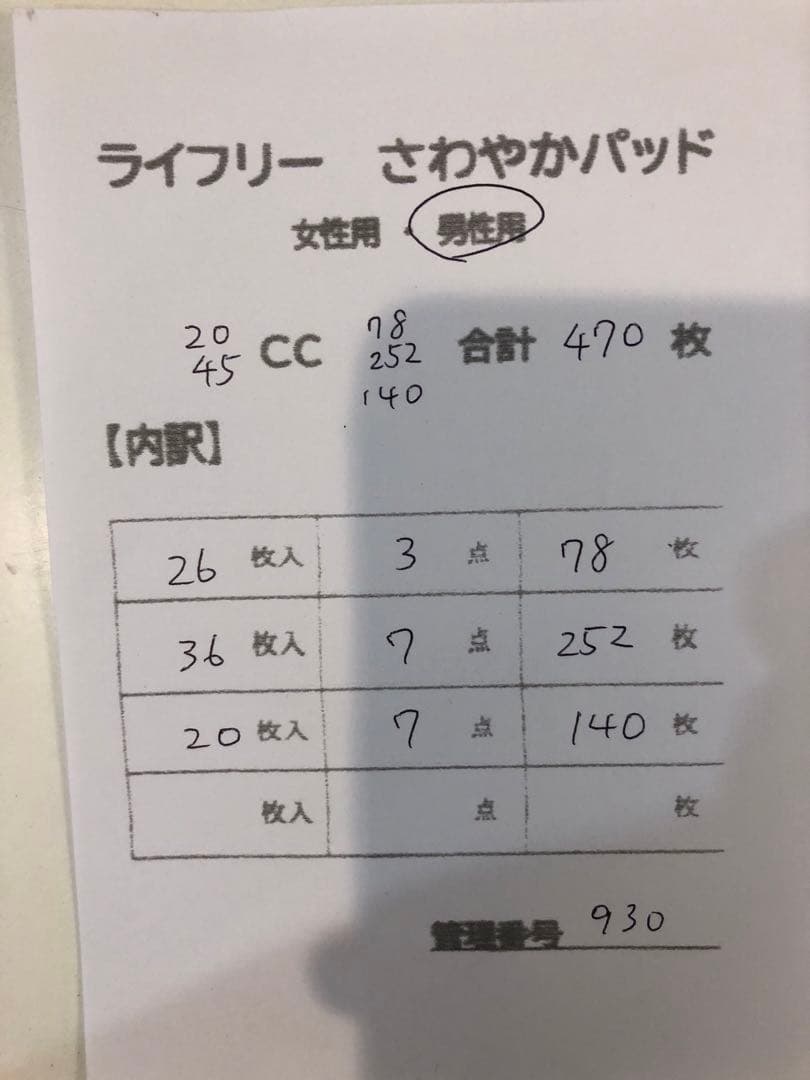 ライフリー さわやかパッド
女性用・男性用
20
45 CC 78
252
140 合計 470 枚
【内訳】
26 枚入 3 点 78 枚
36 枚入 7 点 252 枚
20 枚入 7 点 140 枚
枚入 点 枚
管理番号 930